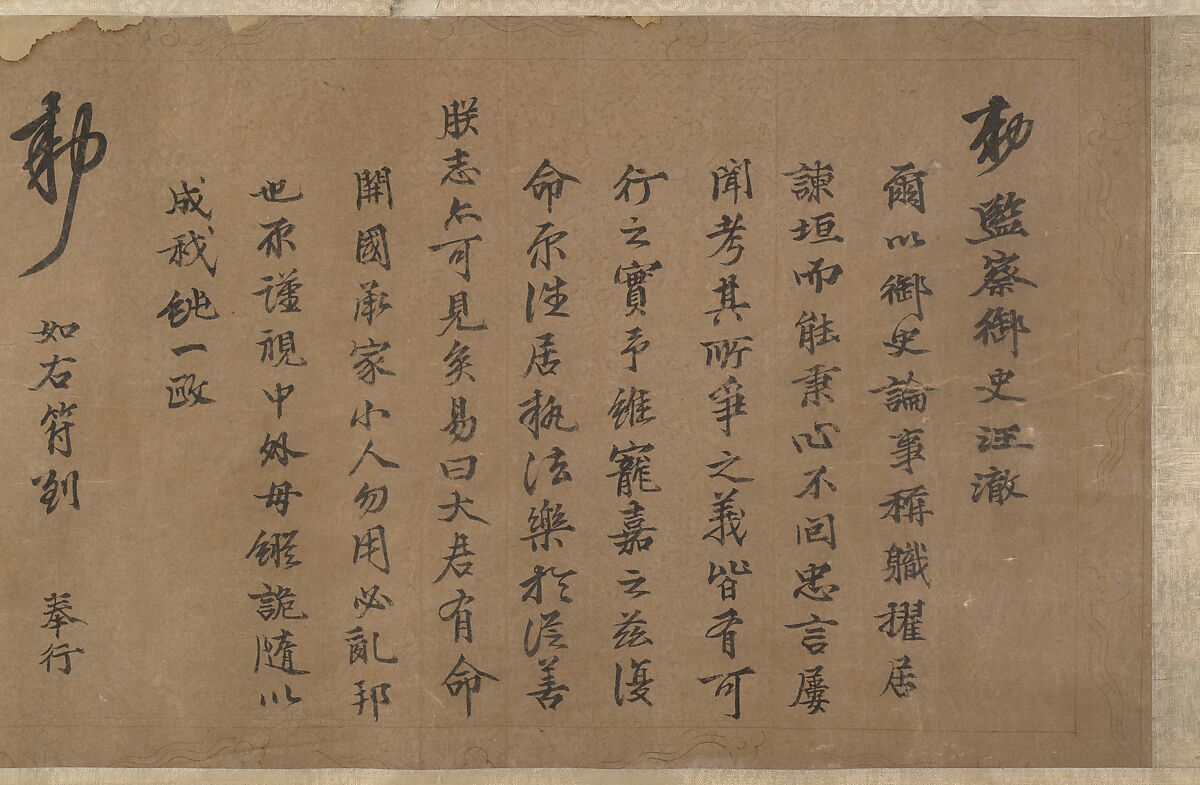 勑監察御史汪澈
爾以御史論事稱職擢居
諫垣而能秉心不回忠言屢
聞考其所爭之義皆有可
行之實予維寵嘉之茲復
命尔往居執法樂於從善
朕志亦可見矣易曰大君有命
開國承家小人勿用必亂邦
也尔謹視中外毋縱詭隨以
成我純一政
勑 如右符到 奉行